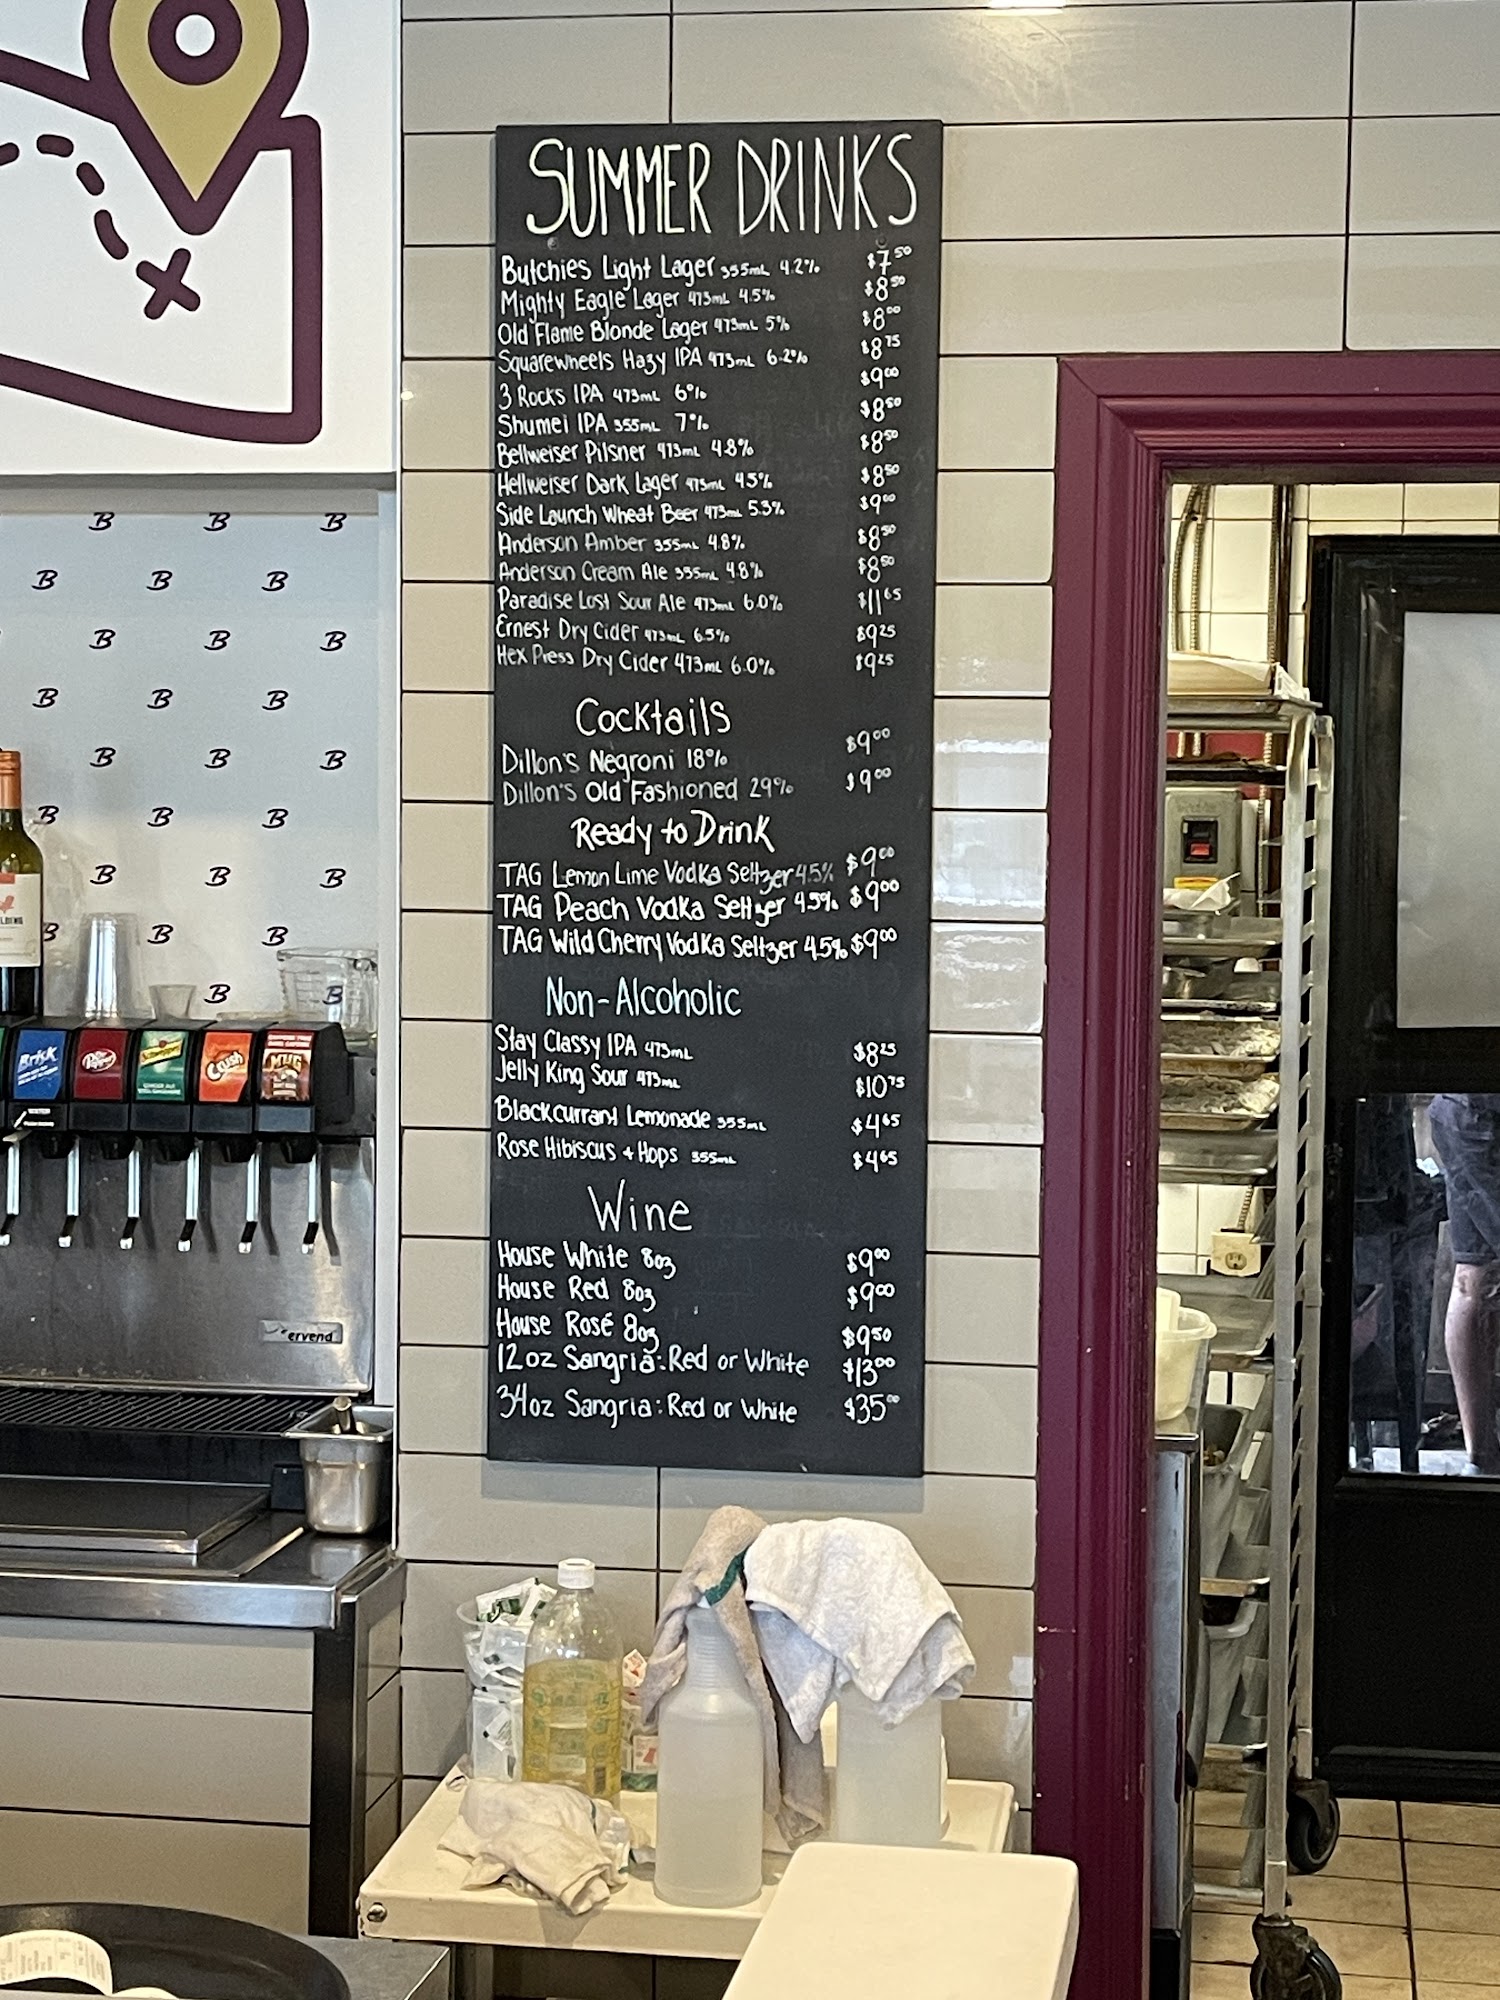 SUMMER DRINKS
Butchies Light Lager 355mL 4.2% $7.50
Mighty Eagle Lager 473mL 4.5% $8.50
Old Flame Blonde Lager 473mL 5% $8.00
Squarewheels Hazy IPA 473mL 6.2% $8.75
3 Rocks IPA 473mL 6% $9.00
Shumei IPA 355mL 7% $8.50
Bellweiser Pilsner 473mL 4.8% $8.50
Hellweiser Dark Lager 473mL 4.5% $8.50
Side Launch Wheat Beer 473mL 5.3% $9.00
Anderson Amber 355mL 4.8% $8.50
Anderson Cream Ale 355mL 4.8% $8.50
Paradise Lost Sour Ale 473mL 6.0% $11.65
Ernest Dry Cider 473mL 6.5% $9.25
Hex Press Dry Cider 473mL 6.0% $9.25
Cocktails
Dillon's Negroni 18% $9.00
Dillon's Old Fashioned 29% $9.00
Ready to Drink
TAG Lemon Lime Vodka Seltzer 4.5% $9.00
TAG Peach Vodka Seltzer 4.5% $9.00
TAG Wild Cherry Vodka Seltzer 4.5% $9.00
Non-Alcoholic
Stay Classy IPA 473mL $8.25
Jelly King Sour 473mL $10.75
Blackcurrant Lemonade 355mL $4.65
Rose Hibiscus + Hops 355mL $4.65
Wine
House White 8oz $9.00
House Red 8oz $9.00
House Rosé 8oz $9.50
12oz Sangria: Red or White $13.00
34oz Sangria: Red or White $35.00
B B B
B B B
B B B
B B B
B B B
B B B
B B B
B B B
B B
Brisk
Dr Pepper
Schweppes
GINGER ALE
Crush
MUG
ervend